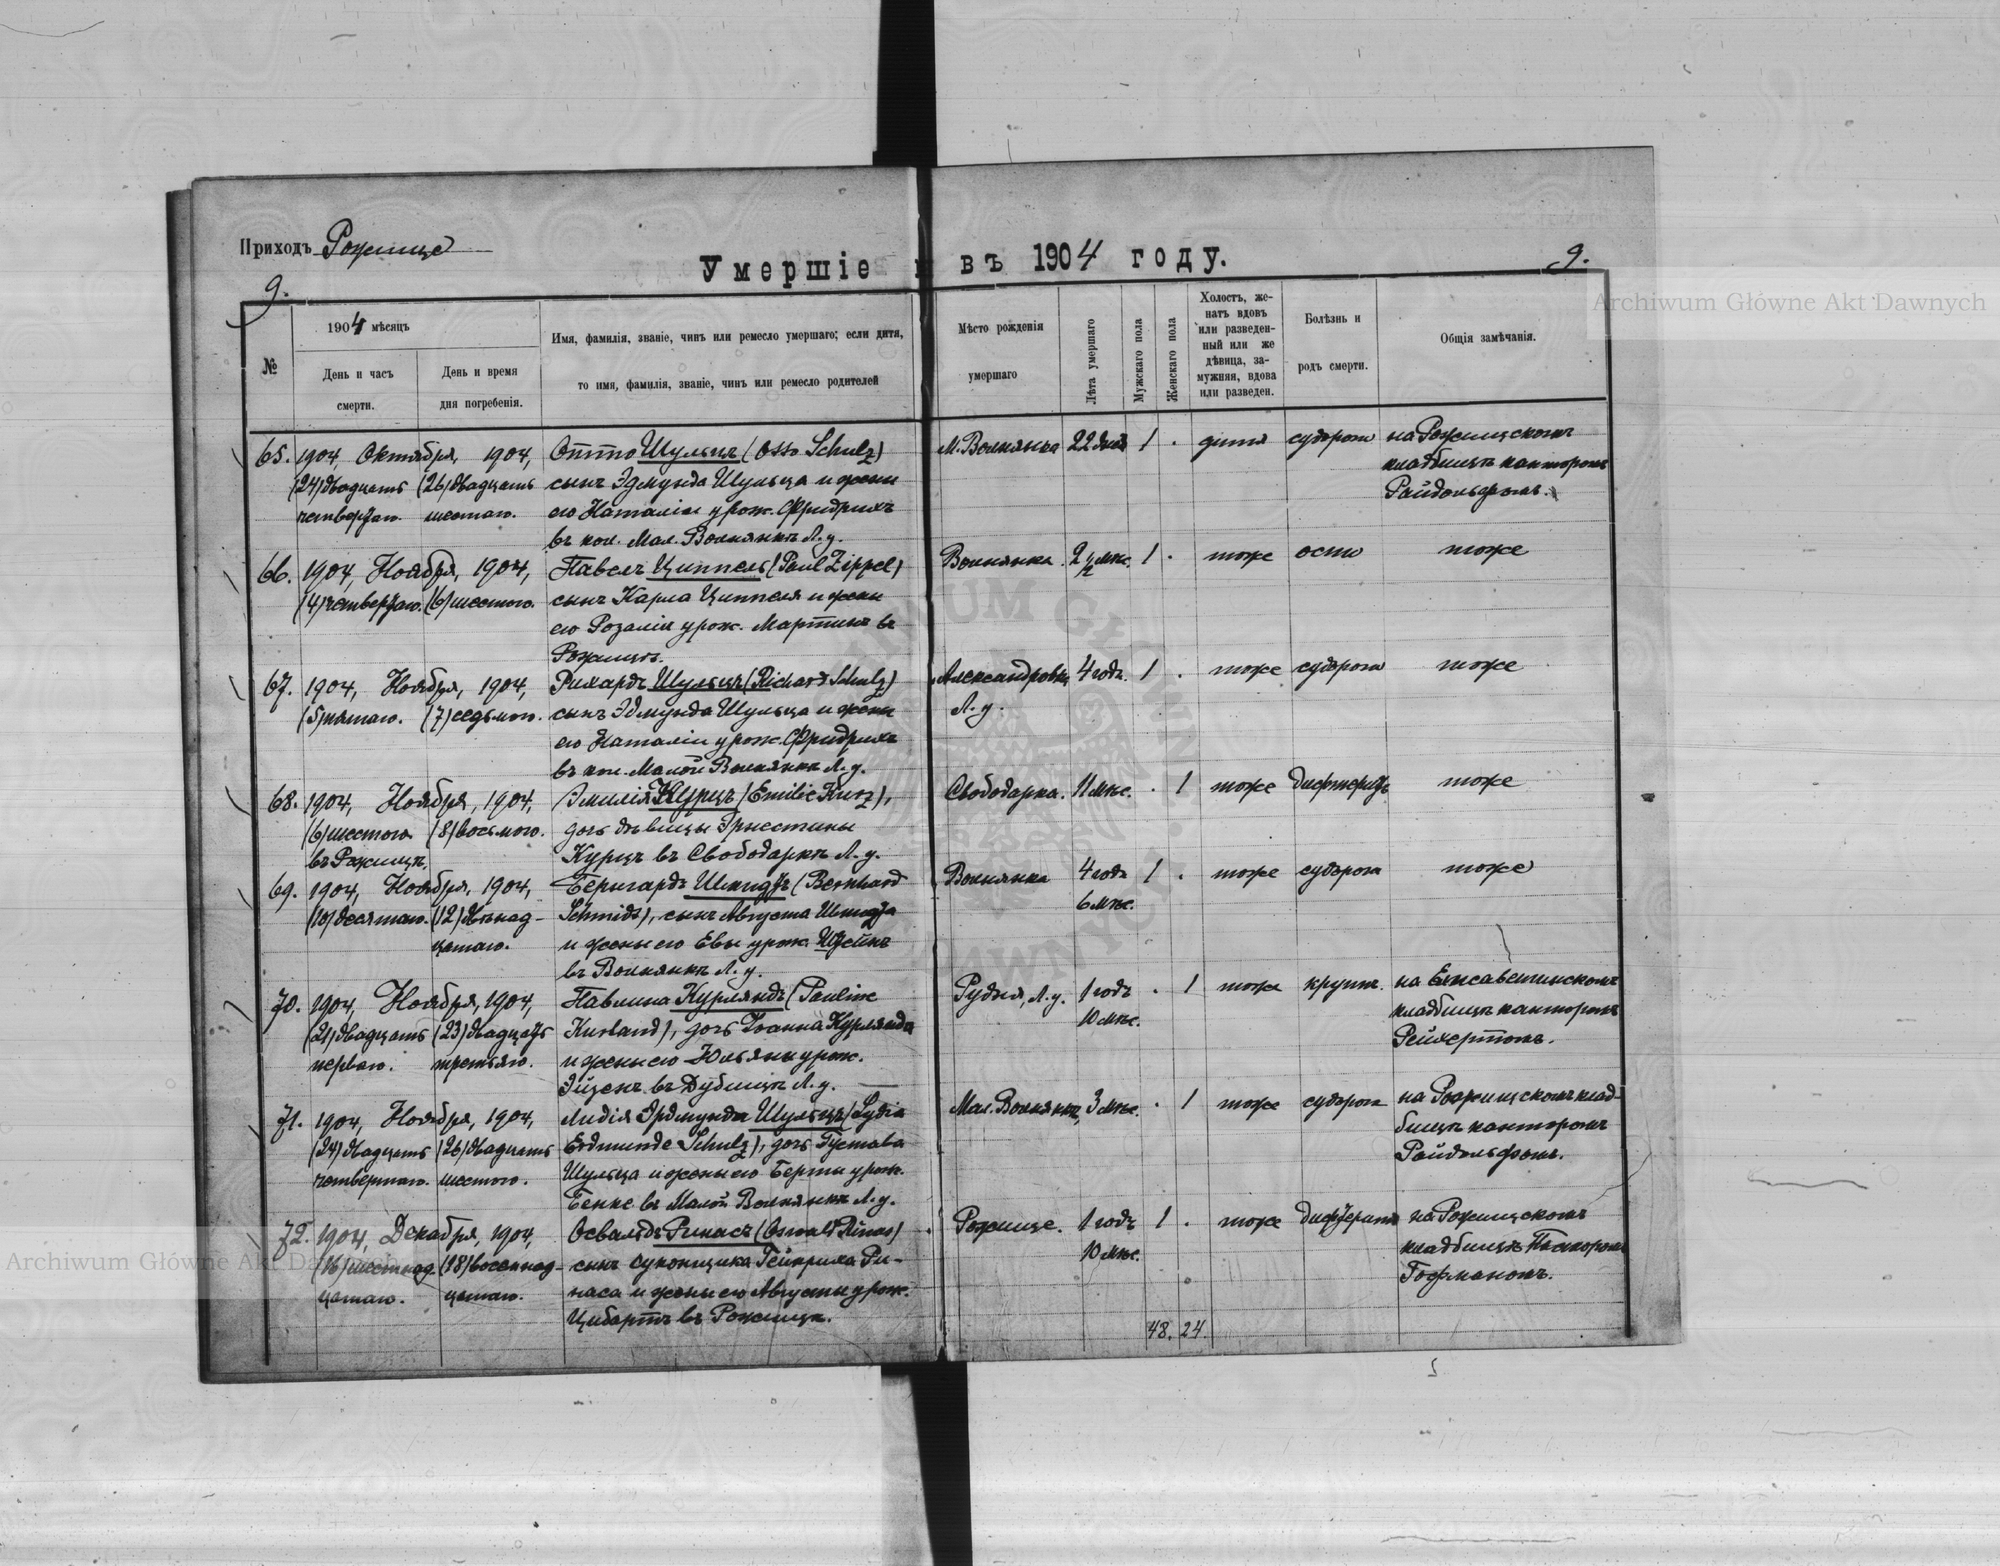 Приходъ Рожище
Умершіе въ 1904 году.
9.
9.
№
1904 мѣсяцъ
День и часъ смерти.
День и время дня погребенія.
Имя, фамилія, званіе, чинъ или ремесло умершаго; если дитя,
то имя, фамилія, званіе, чинъ или ремесло родителей
Мѣсто рожденія
умершаго
Лѣта умершаго
Мужскаго пола
Женскаго пола
Холостъ, же-
натъ вдовъ
или разведен-
ный или же
дѣвица, за-
мужняя, вдова
или разведен.
Болѣзнь и
родъ смерти.
Общія замѣчанія.
65. 1904, Октября, 1904, Отто Шульцъ (Otto Schulz) М. Волнянка 22 дня 1 . дитя судорога на Рожищскомъ
(24) двадцать (26) двадцать сынъ Эдмунда Шульца и жены кладбищѣ канторомъ
четвертаго. шестаго. его Наталіи урож. Фридрихъ Райдольфомъ.
въ кол. Мал. Волнянкѣ Л. у.
66. 1904, Ноября, 1904, Павелъ Циппель (Paul Zippel) Волнянка. 2 1/2 мѣс. 1 . тоже оспа тоже
(4) четвертаго. (6) шестого. сынъ Карла Циппеля и жены
его Розаліи урож. Мартинъ въ
Рожищѣ.
67. 1904, Ноября, 1904, Рихардъ Шульцъ (Richard Schulz) Александровка 4 годъ. 1 . тоже судорога тоже
(5) пятаго. (7) седьмого. сынъ Эдмунда Шульца и жены Л. у.
его Наталіи урож. Фридрихъ
въ кол. Малой Волнянкѣ Л. у.
68. 1904, Ноября, 1904, Эмилія Курцъ (Emilie Kurz), Свободарка. 11 мѣс. . 1 тоже дифтеритъ тоже
(6) шестого (8) восьмого. дочь дѣвицы Эрнестины
въ Рожищѣ, Курцъ въ Свободаркѣ Л. у.
69. 1904, Ноября, 1904, Бернгардъ Шмидтъ (Bernhard Волнянка 4 годъ 1 . тоже судорога тоже
(10) десятаго. (12) двѣнад- Schmidt), сынъ Августа Шмидта 6 мѣс.
цатаго. и жены его Евы урож. Штейнъ
въ Волнянкѣ Л. у.
70. 1904, Ноября, 1904, Павлина Курляндъ (Pauline Рудня, Л. у. 1 годъ . 1 тоже крупъ. на Елисаветинскомъ
(21) двадцать (23) двадцать Kurland), дочь Іоанна Курлянда 10 мѣс. кладбищѣ канторомъ
перваго. третьяго. и жены его Юльяны урож. Рейхертомъ.
Эйзенъ въ Дубищѣ Л. у.
71. 1904, Ноября, 1904, Лидія Эрдмунда Шульцъ (Lydia Мал. Волнянка, 3 мѣс. . 1 тоже судорога на Рожищскомъ клад-
(24) двадцать (26) двадцать Erdmunde Schulz), дочь Густава бищѣ канторомъ
четвертаго. шестого. Шульца и жены его Берты урож. Райдольфомъ.
Бенке въ Малой Волнянкѣ Л. у.
72. 1904, Декабря, 1904, Освальдъ Ринасъ (Oswald Rinas) Рожище. 1 годъ 1 . тоже дифтеритъ на Рожищскомъ
(16) шестнад- (18) восемнад- сынъ суконщика Гейнриха Ри- 10 мѣс. кладбищѣ Пасторомъ
цатаго. цатаго. наса и жены его Августы урож. Гофманомъ.
Цибартъ въ Рожищѣ.
48. 24.
Archiwum Główne Akt Dawnych
Archiwum Główne Akt Dawnych